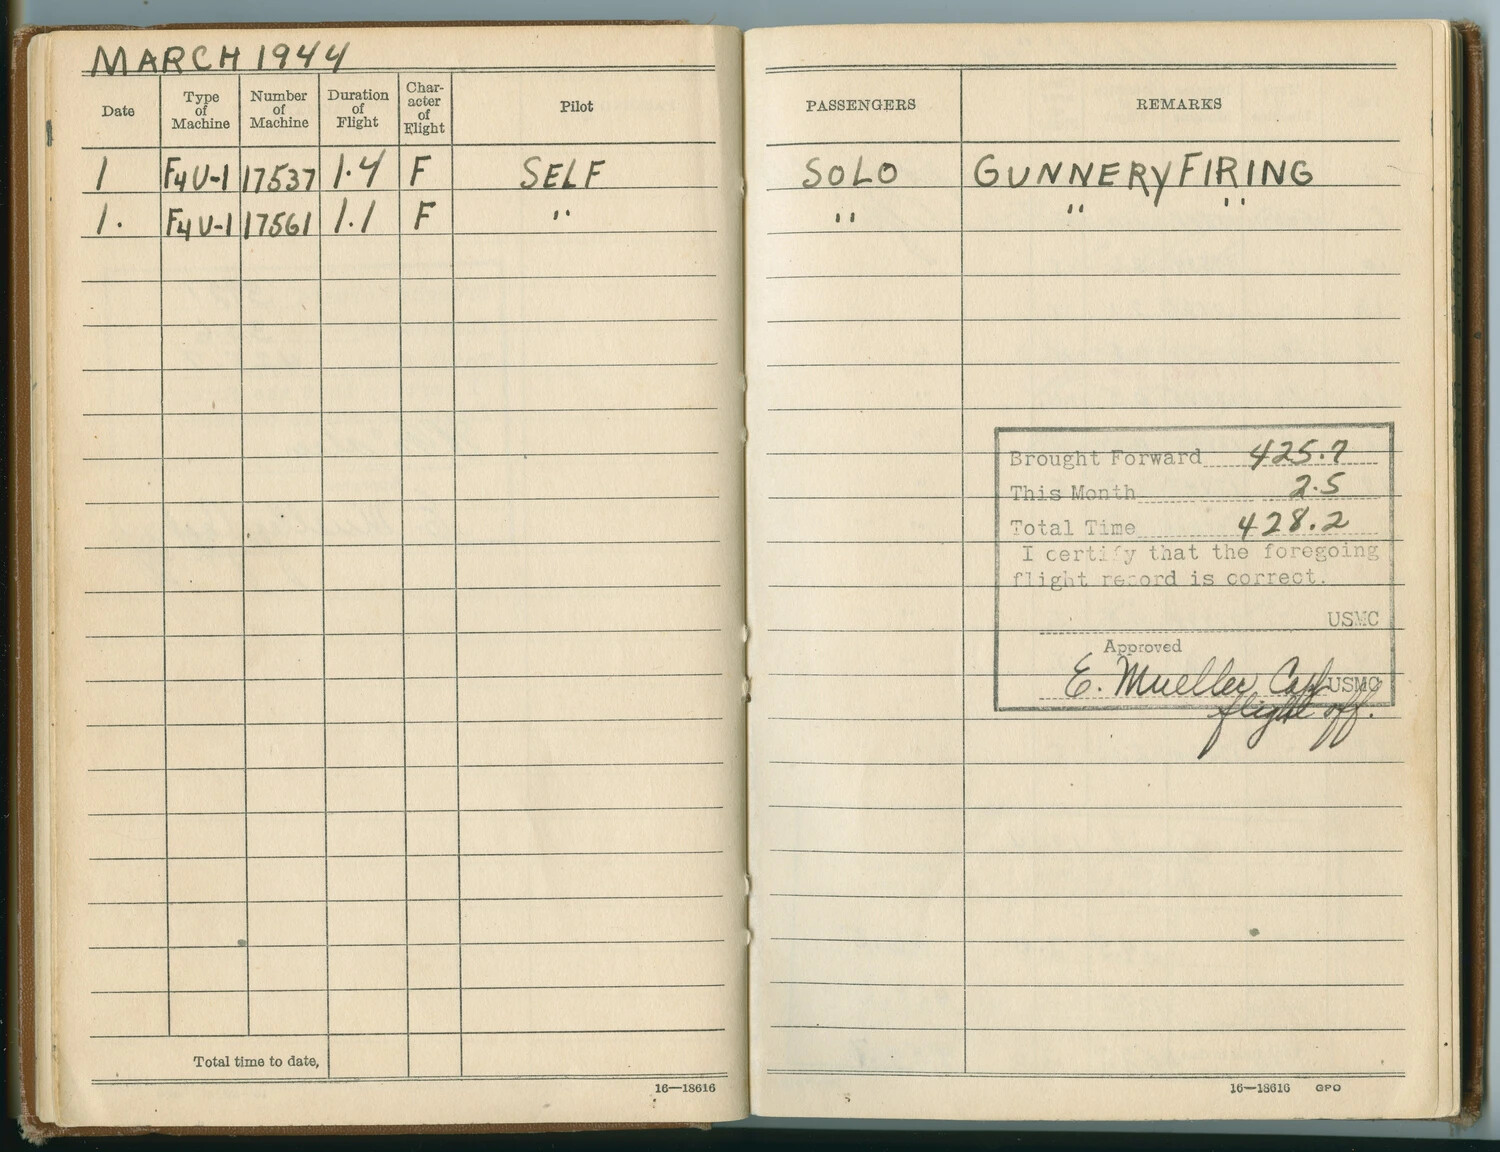 MARCH 1944
Date Type of Machine Number of Machine Duration of Flight Char- acter of Flight Pilot PASSENGERS REMARKS
1 F4U-1 17537 1.4 F SELF SOLO GUNNERY FIRING
1. F4U-1 17561 1.1 F " " " "
Brought Forward 425.7
This Month 2.5
Total Time 428.2
I certify that the foregoing
flight record is correct.
USMC
Approved
E. Mueller Capt USMC
flight off.
Total time to date,
16—18616
16—18616 GPO